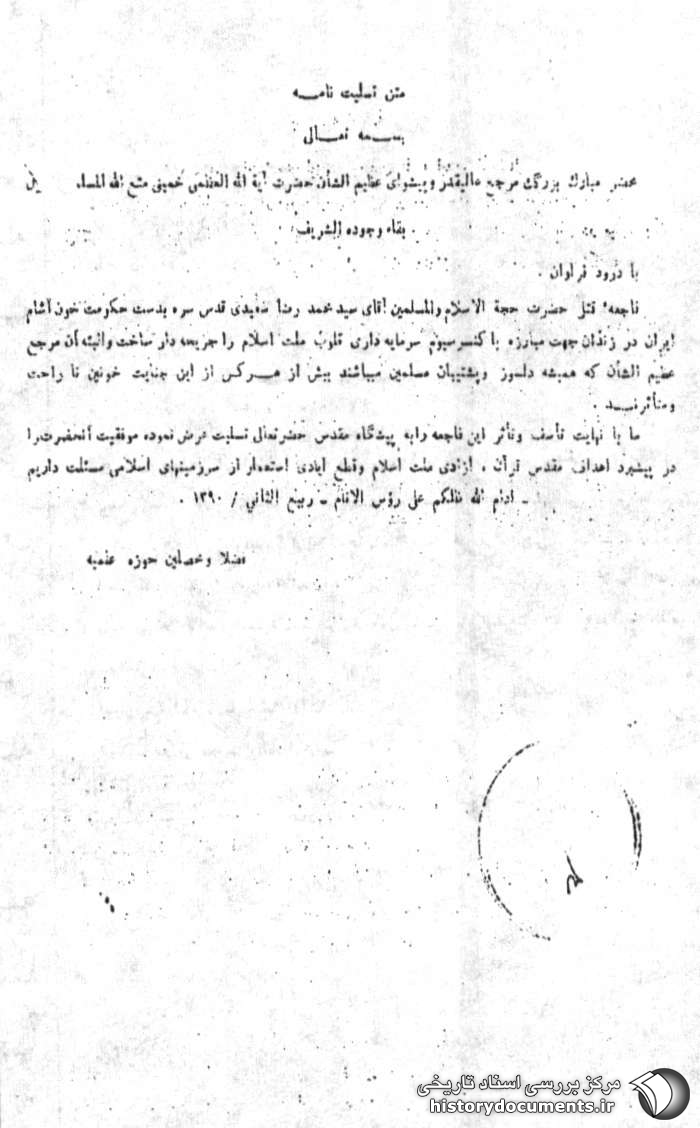 متن تسلیت نامـــه
بســـمه تعـــالی
محضر مبارک بزرگ مرجع عالیقدر وپیشوای عظیم الشأن حضرت آیة الله العظمی خمینی متع الله المسلمین
بقاء وجوده الشریف
با درود فراوان .
فاجعهٔ قتل حضرت حجة الاسلام والمسلمین آقای سید محمد رضا سعیدی قدس سره بدست حکومت خون آشام
ایران در زندان جهت مبارزه با کنسرسیوم سرمایه داری قلوب ملت اسلام را جریحه دار ساخت والبته آن مرجع
عظیم الشأن که همیشه دلسوز وپشتیبان مسلمین میباشند بیش از هـــرکس از این جنایت خونین نا راحت
ومتأثرنـــد .
ما با نهایت تأسف وتأثر این فاجعه رابه پیشگاه مقدس حضرتعالی تسلیت عرض نموده موفقیت آنحضرت را
در پیشبرد اهداف مقدس قرآن ، آزادی ملت اسلام وقطع ایادی استعمار از سرزمینهای اسلامی مسئلت داریم
ـ ادام الله ظلکم علی رؤس الانام ـ ربیع الثاني / ۱۳۹۰ .
فضلا ومحصلین حوزه علمیه
مرکز بررسی اسناد تاریخی
historydocuments.ir